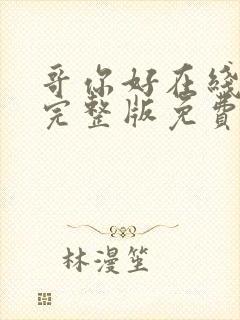 哥你好在綫
完整版免費
林漫笙